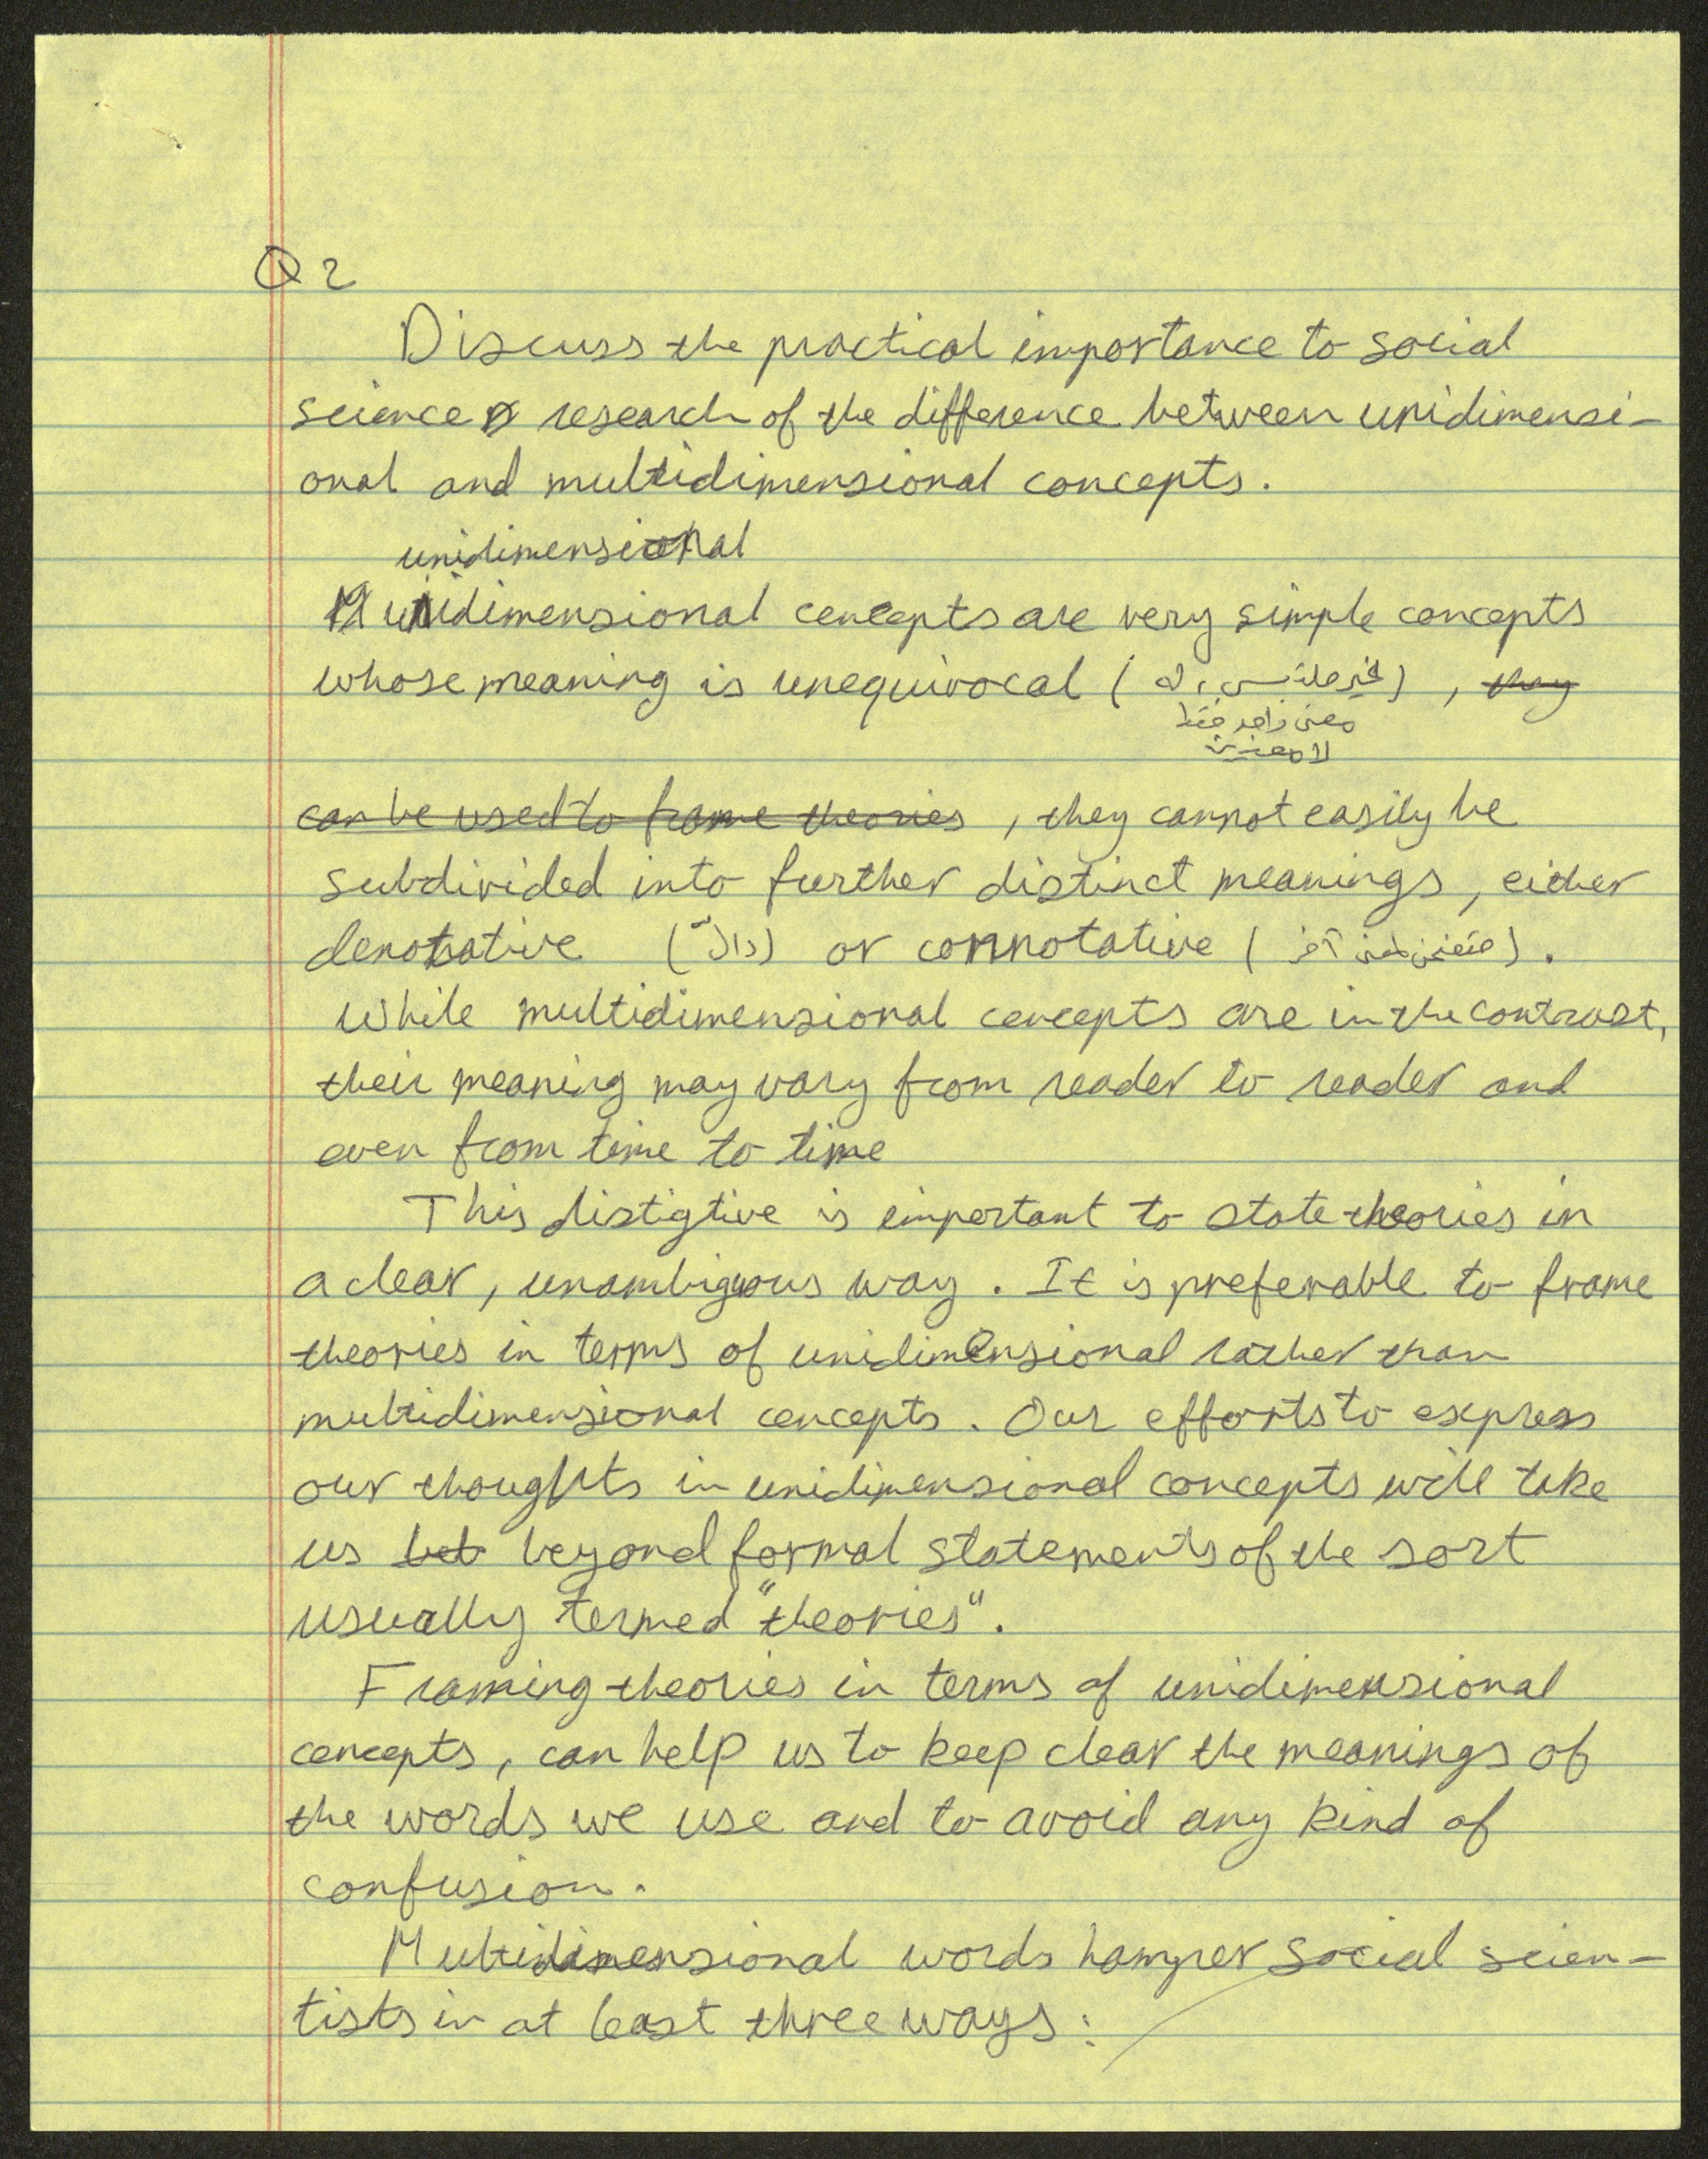 Q 2
Discuss the practical importance to social
science research of the difference between unidimensi-
onal and multidimensional concepts.
unidimensional
Munidimensional concepts are very simple concepts
whose meaning is unequivocal (غير ملتبس، له), they
معنى واحد فقط
لا معنيين
can be used to frame theories, they cannot easily be
subdivided into further distinct meanings, either
denotative (دالّ) or connotative (متضمن لمعنى آخر).
While multidimensional concepts are in the contrast,
their meaning may vary from reader to reader and
even from time to time
This distigtive is important to state theories in
a clear, unambiguous way. It is preferable to frame
theories in terms of unidimensional rather than
multidimensional concepts. Our efforts to express
our thoughts in unidimensional concepts will take
us bet beyond formal statements of the sort
usually termed "theories".
Framing theories in terms of unidimensional
concepts, can help us to keep clear the meanings of
the words we use and to avoid any kind of
confusion.
Multidimensional words hamper social scien-
tists in at least three ways: